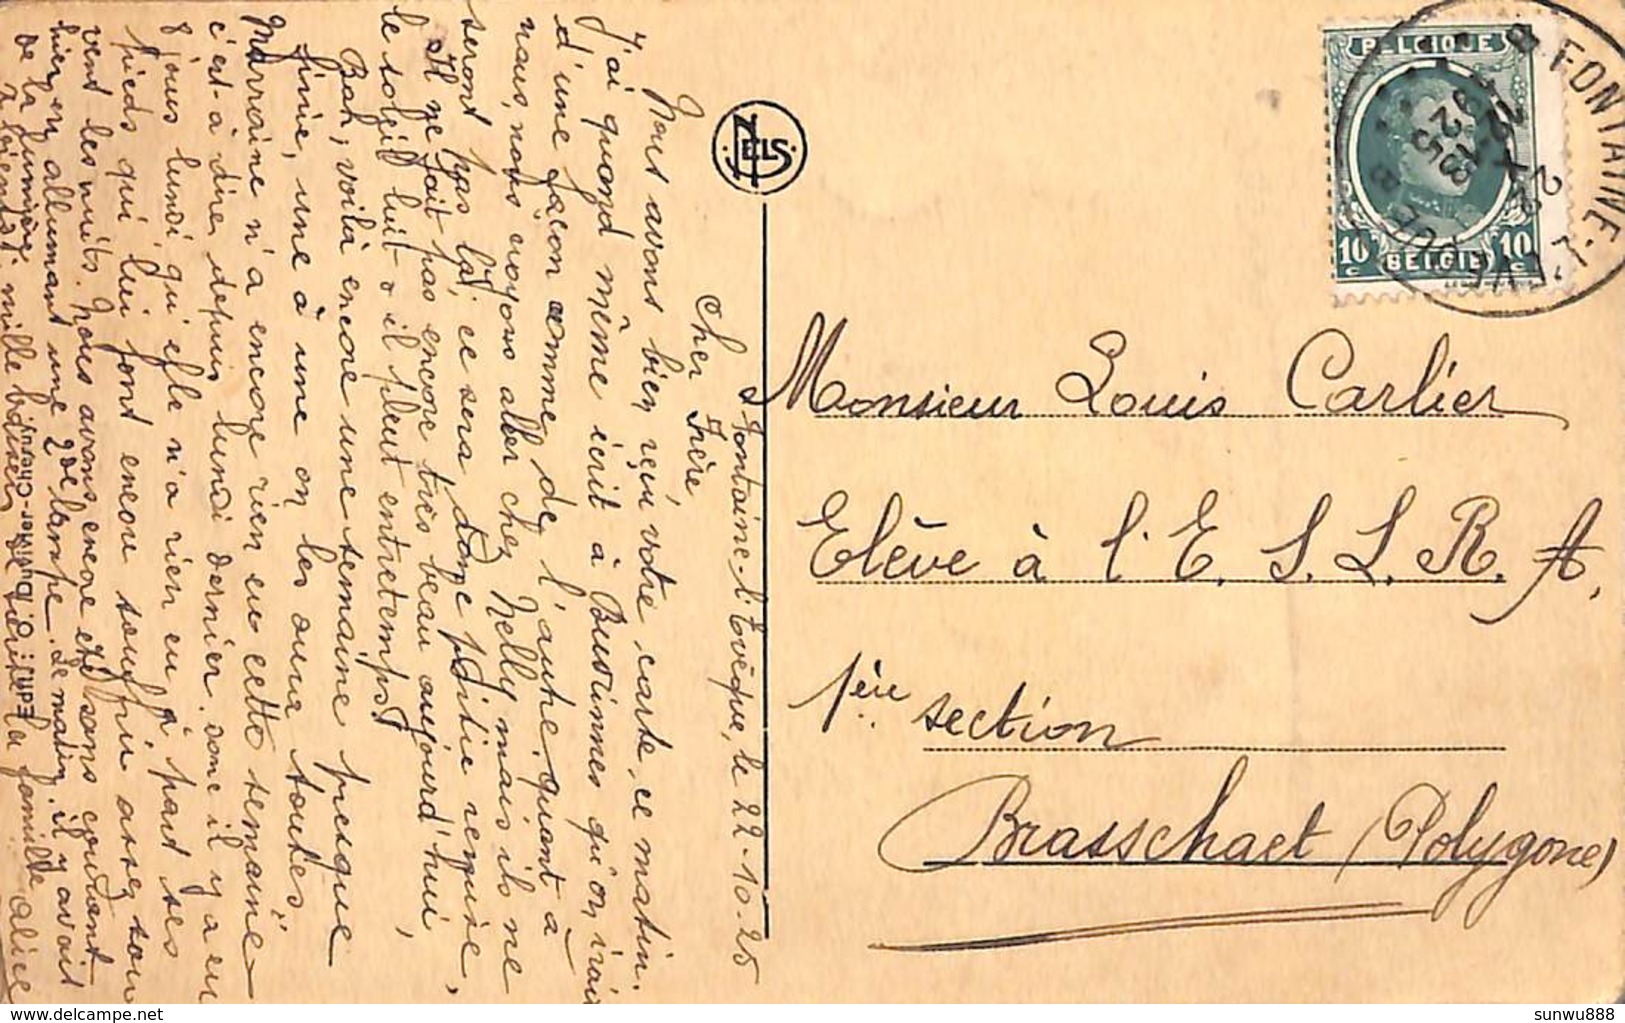 Fontaine-l'Evêque, le 22-10-25
Cher Frère,
Nous avons bien reçu votre carte, ce matin.
J'ai quand même écrit à Buvrinnes qu'on irait
d'une façon comme de l'autre, quant à
nous, nous croyons aller chez Nelly mais ils ne
seront pas là; ce sera donc partie remise,
Il ne fait pas encore très beau aujourd'hui,
le soleil luit & il pleut entretemps
Bah, voilà encore une semaine presque
finie, une à une on les aura toutes.
Marraine n'a encore rien eu cette semaine
c'est-à-dire depuis lundi dernier, donc il y a eu
8 jours lundi, qu'elle n'a rien eu à part ses
pieds qui lui font encore souffrir assez sou
vent les nuits. Nous avons encore été sans courant
hier en allumant une 2de lampe. Le matin, il y avait
de la lumière
mille baisers de toute la famille Alice
NELS
Edit.: O. Duvivier-Cherqui,
BELGIQUE
10 c
BELGIË
10 c
FONTAINE-L'EVEQUE
22 X
18
19 25
Monsieur Louis Carlier
Elève à l'E. S. L. R. A.
1ère section
Brasschaet (Polygone)
delcampe.net
sunwu888